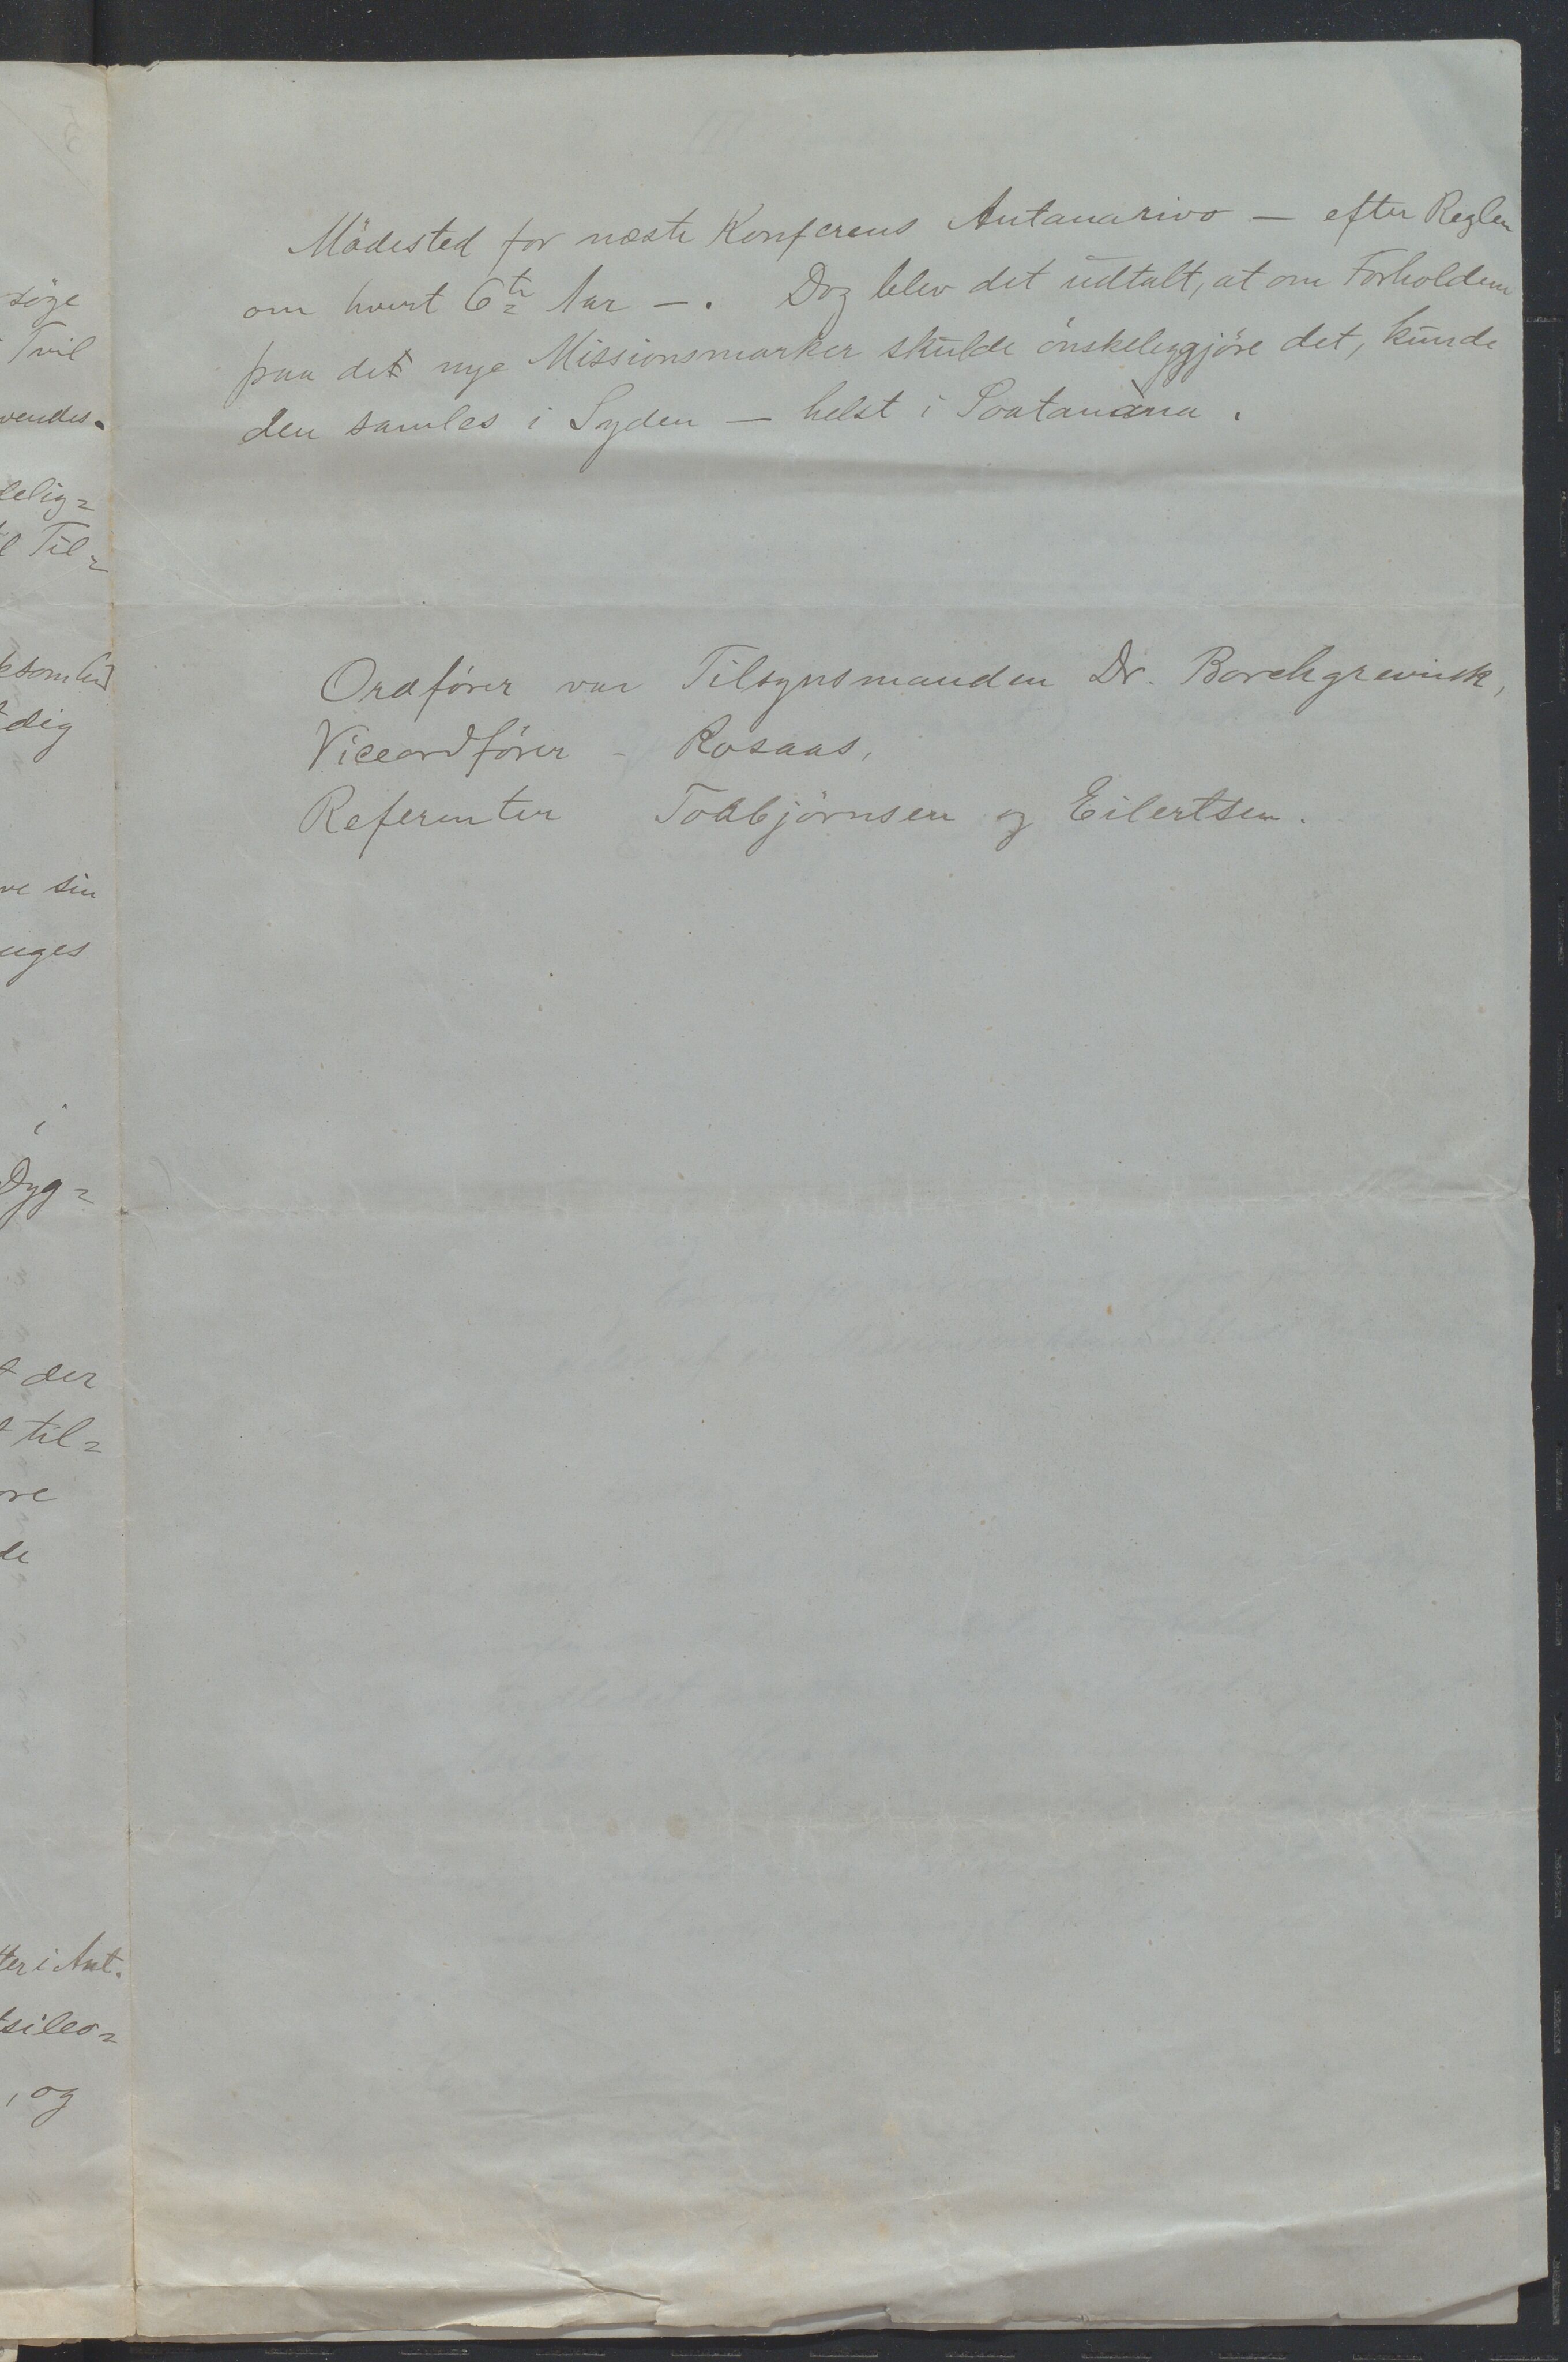 söge
Tvil
vendes.
elig=
l Til=
ksomhed
dig
ve sin
nges
i
Dyg=
t der
t til=
ore
de
ter i Ant.
tsileo=
, og
Mödested for næste Konferens Antanarivo — efter Reglen
om hvert 6te Aar —. Dog blev det udtalt, at om Forholdene
paa det nye Missionsmarker skulde önskeliggjöre det, kunde
den samles i Syden — helst i Soatanàna.
Ordförer var Tilsynsmanden Dr. Borchgrevinck,
Viceordförer - Rosaas,
Referenter Torbjörnsen og Eilertsen.